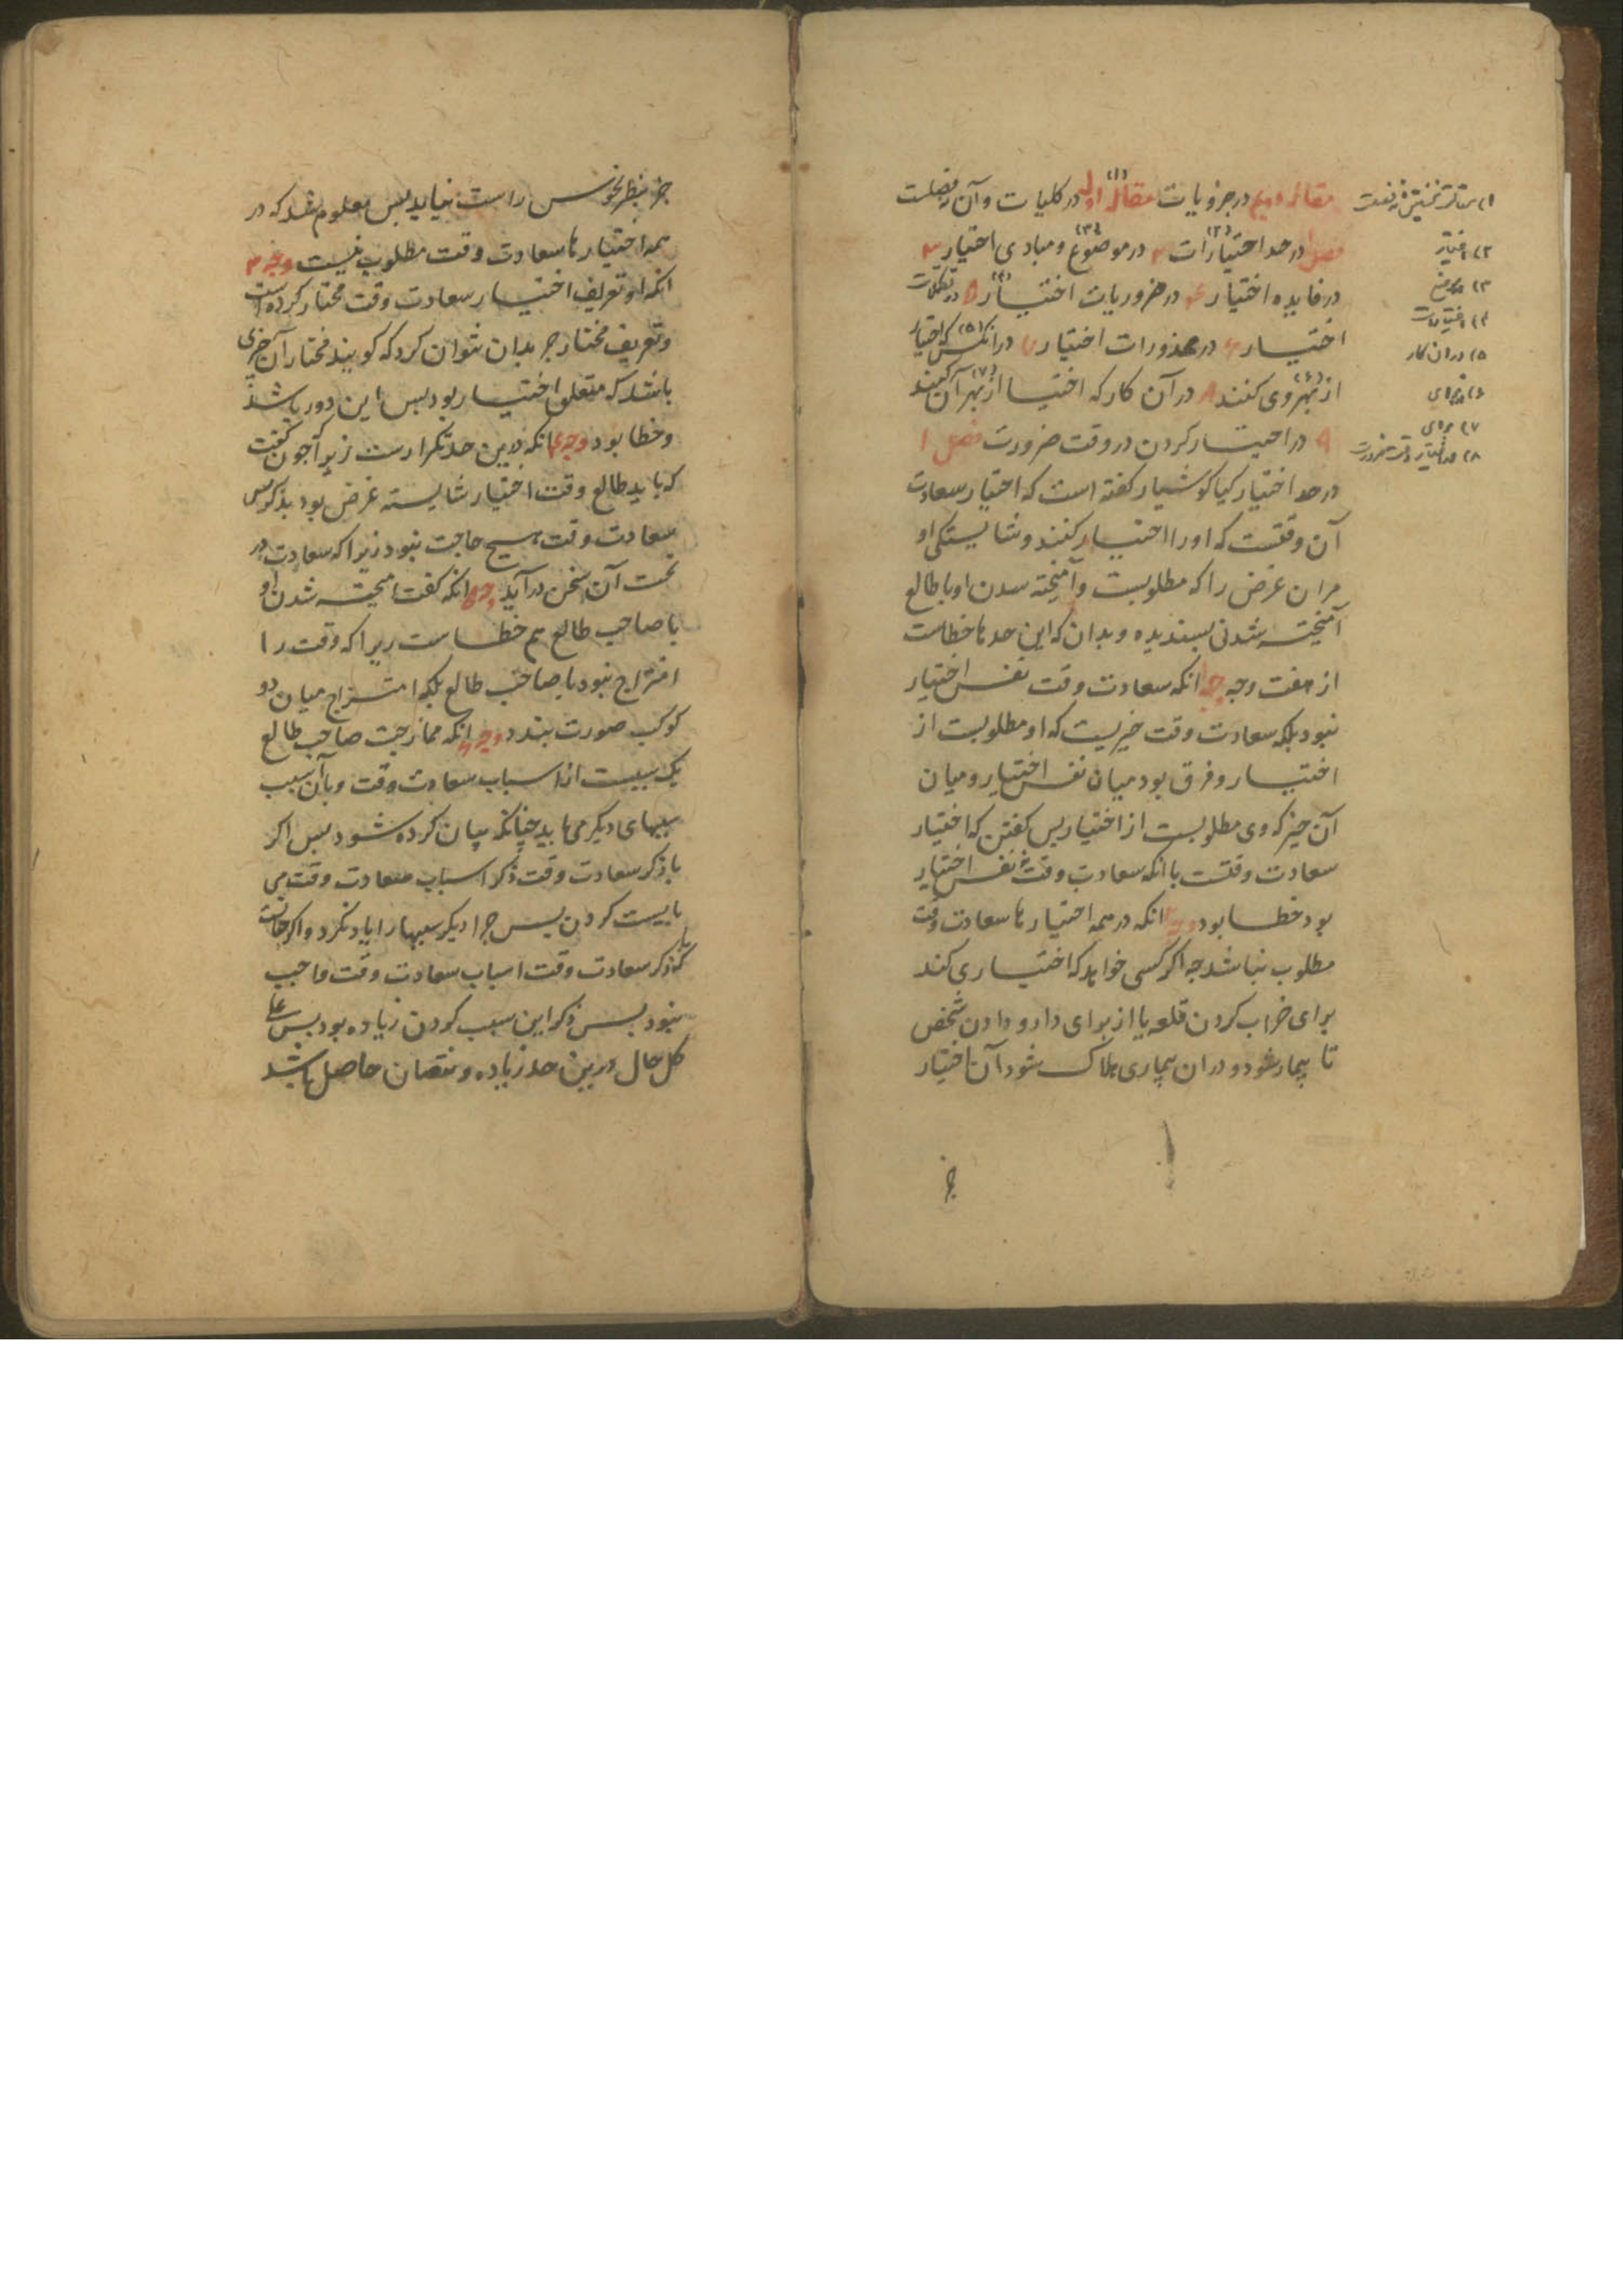 مقاله دویم در جزویات مقاله اولی در کلیات و آن نه فصلست
فصل ۱ در حد اختیارات ۲ در موضوع و مبادی اختیار ۳
در فایده اختیار ۴ در ضروریات اختیار ۵ در تکملات
اختیار ۶ در محذورات اختیار ۷ در انکس که اختیار
از بهر وی کنند ۸ در آن کار که اختیار از بهر آن کنند
۹ در اختیار کردن در وقت ضرورت فصل ۱
در حد اختیار کیا کوشیار کفته است که اختیار سعادت
آن وقتست که او را اختیار کنند و شایستکی او
مران غرض را که مطلوبست و آمیخته شدن او با طالع
آمیخته شدنی پسندیده و بدان که این حد ها خطاست
از هفت وجه وجه ۱ انکه سعادت وقت نفس اختیار
نبود بلکه سعادت وقت چیزیست که او مطلوبست از
اختیار و فرق بود میان نفس اختیار و میان
آن چیز که وی مطلوبست از اختیار پس کفتن که اختیار
سعادت وقتست با انکه سعادت وقت نه نفس اختیار
بود خطا بود وجه ۲ انکه در همه اختیار ها سعادت وقت
مطلوب نباشد چه اکر کسی خواهد که اختیاری کند
برای خراب کردن قلعه یا از برای دارو دادن شخص
تا بیمار شود و در ان بیماری هلاک شود آن اختیار
جز
(۱) مقاله نخستین نه فصلست
(۲) اختیار
(۳) موضع
(۴) اختیارات
(۵) در ان کار
(۶) برای
(۷) برای
(۸) در اختیار وقت ضرورت
جز بنظر نحوس راست نیاید پس معلوم شد که در
همه اختیار ها سعادت وقت مطلوب نیست وجه ۳
انکه او تعریف اختیار سعادت وقت مختار کرده است
و تعریف مختار جز بدان نتوان کرد که کویند مختار آن چیزی
باشد که متعلق اختیار بود پس این دور باشد
و خطا بود وجه ۴ انکه درین حد تکرارست زیرا چون کفت
که باید طالع وقت اختیار شایسته غرض بود بذکر پس
سعادت وقت هیچ حاجت نبود زیرا که سعادت در
تحت آن سخن درآید وجه ۵ انکه کفت امیخته شدن او
با صاحب طالع هم خطاست زیرا که وقت را
امتزاج نبود با صاحب طالع بلکه امتزاج میان دو
کوکب صورت بندد وجه ۶ انکه ممازجت صاحب طالع
یک سببست از اسباب سعادت وقت و با آن سبب
سببهای دیکر می باید چنانکه بیان کرده شود پس اکر
با ذکر سعادت وقت ذکر اسباب سعادت وقت می
بایست کردن پس چرا دیکر سببها را یاد نکرد و اکر چنانست
که با ذکر سعادت وقت اسباب سعادت وقت واجب
نبود پس ذکر این سبب کردن زیاده بود پس علی
کل حال درین حد زیاده و نقصان حاصل باشد